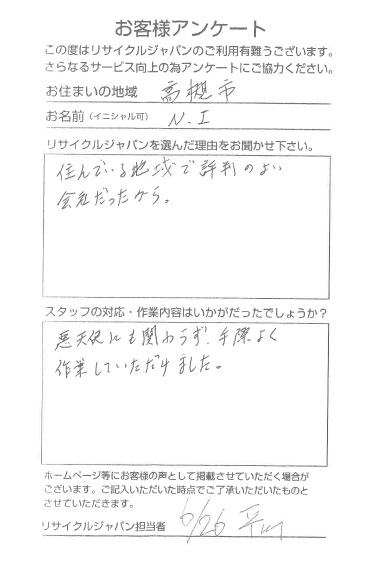 お客様アンケート
この度はリサイクルジャパンのご利用有難うございます。
さらなるサービス向上の為アンケートにご協力ください。
お住まいの地域 高槻市
お名前（イニシャル可） N.I
リサイクルジャパンを選んだ理由をお聞かせ下さい。
住んでいる地域で評判のよい
会社だったから。
スタッフの対応・作業内容はいかがだったでしょうか？
悪天候にも関わらず、手際よく
作業していただけました。
ホームページ等にお客様の声として掲載させていただく場合が
ございます。ご記入いただいた時点でご了承いただいたものと
させていただきます。
リサイクルジャパン担当者 6/26 平山